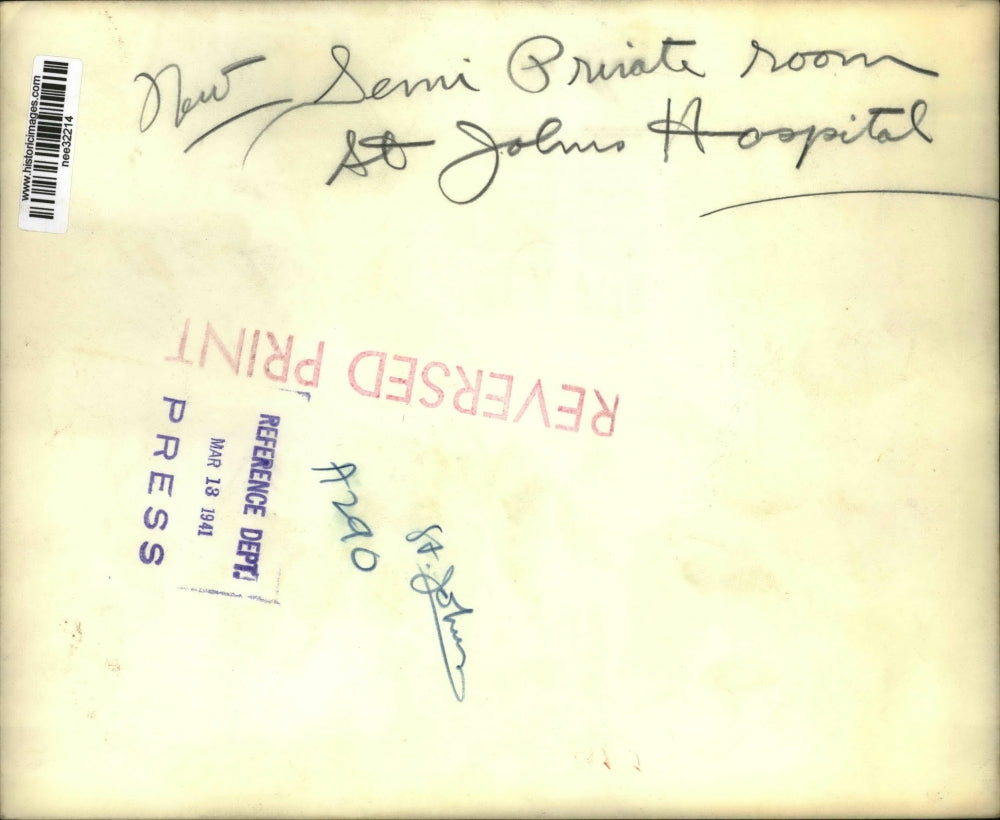 New Semi Private room
St Johns Hospital
www.historicimages.com
nee32214
REVERSED PRINT
REFERENCE DEPT.
MAR 18 1941
PRESS
A290
St. Johns